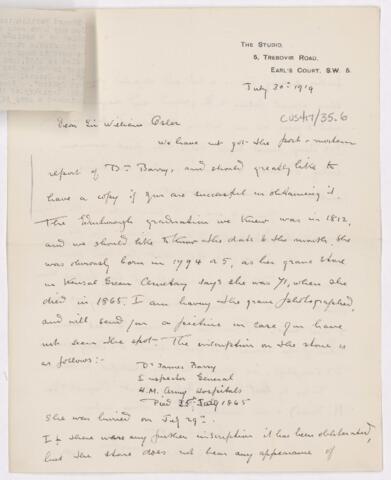 THE STUDIO,
5, TREBOVIR ROAD,
EARL'S COURT, S.W. 5.
July 30th 1919
CUS417/35.6
Dear Sir William Osler
We have not got the post-mortem
report of Dr Barry, and should greatly like to
have a copy if you are successful in obtaining it.
The Edinburgh graduation we knew was in 1812,
and we should like to know the date & the month. She
was obviously born in 1794 or 5, as her grave stone
in Kensal Green Cemetery says she was 71, when she
died in 1865. I am having the grave photographed,
and will send you a picture in case you have
not seen the spot. The inscription on the stone is
as follows:-
Dr James Barry
Inspector General
H.M. Army Hospitals
Died 25th July 1865
She was buried on July 29th.
If there were any further inscription it has been obliterated,
but the stone does not bear any appearance of